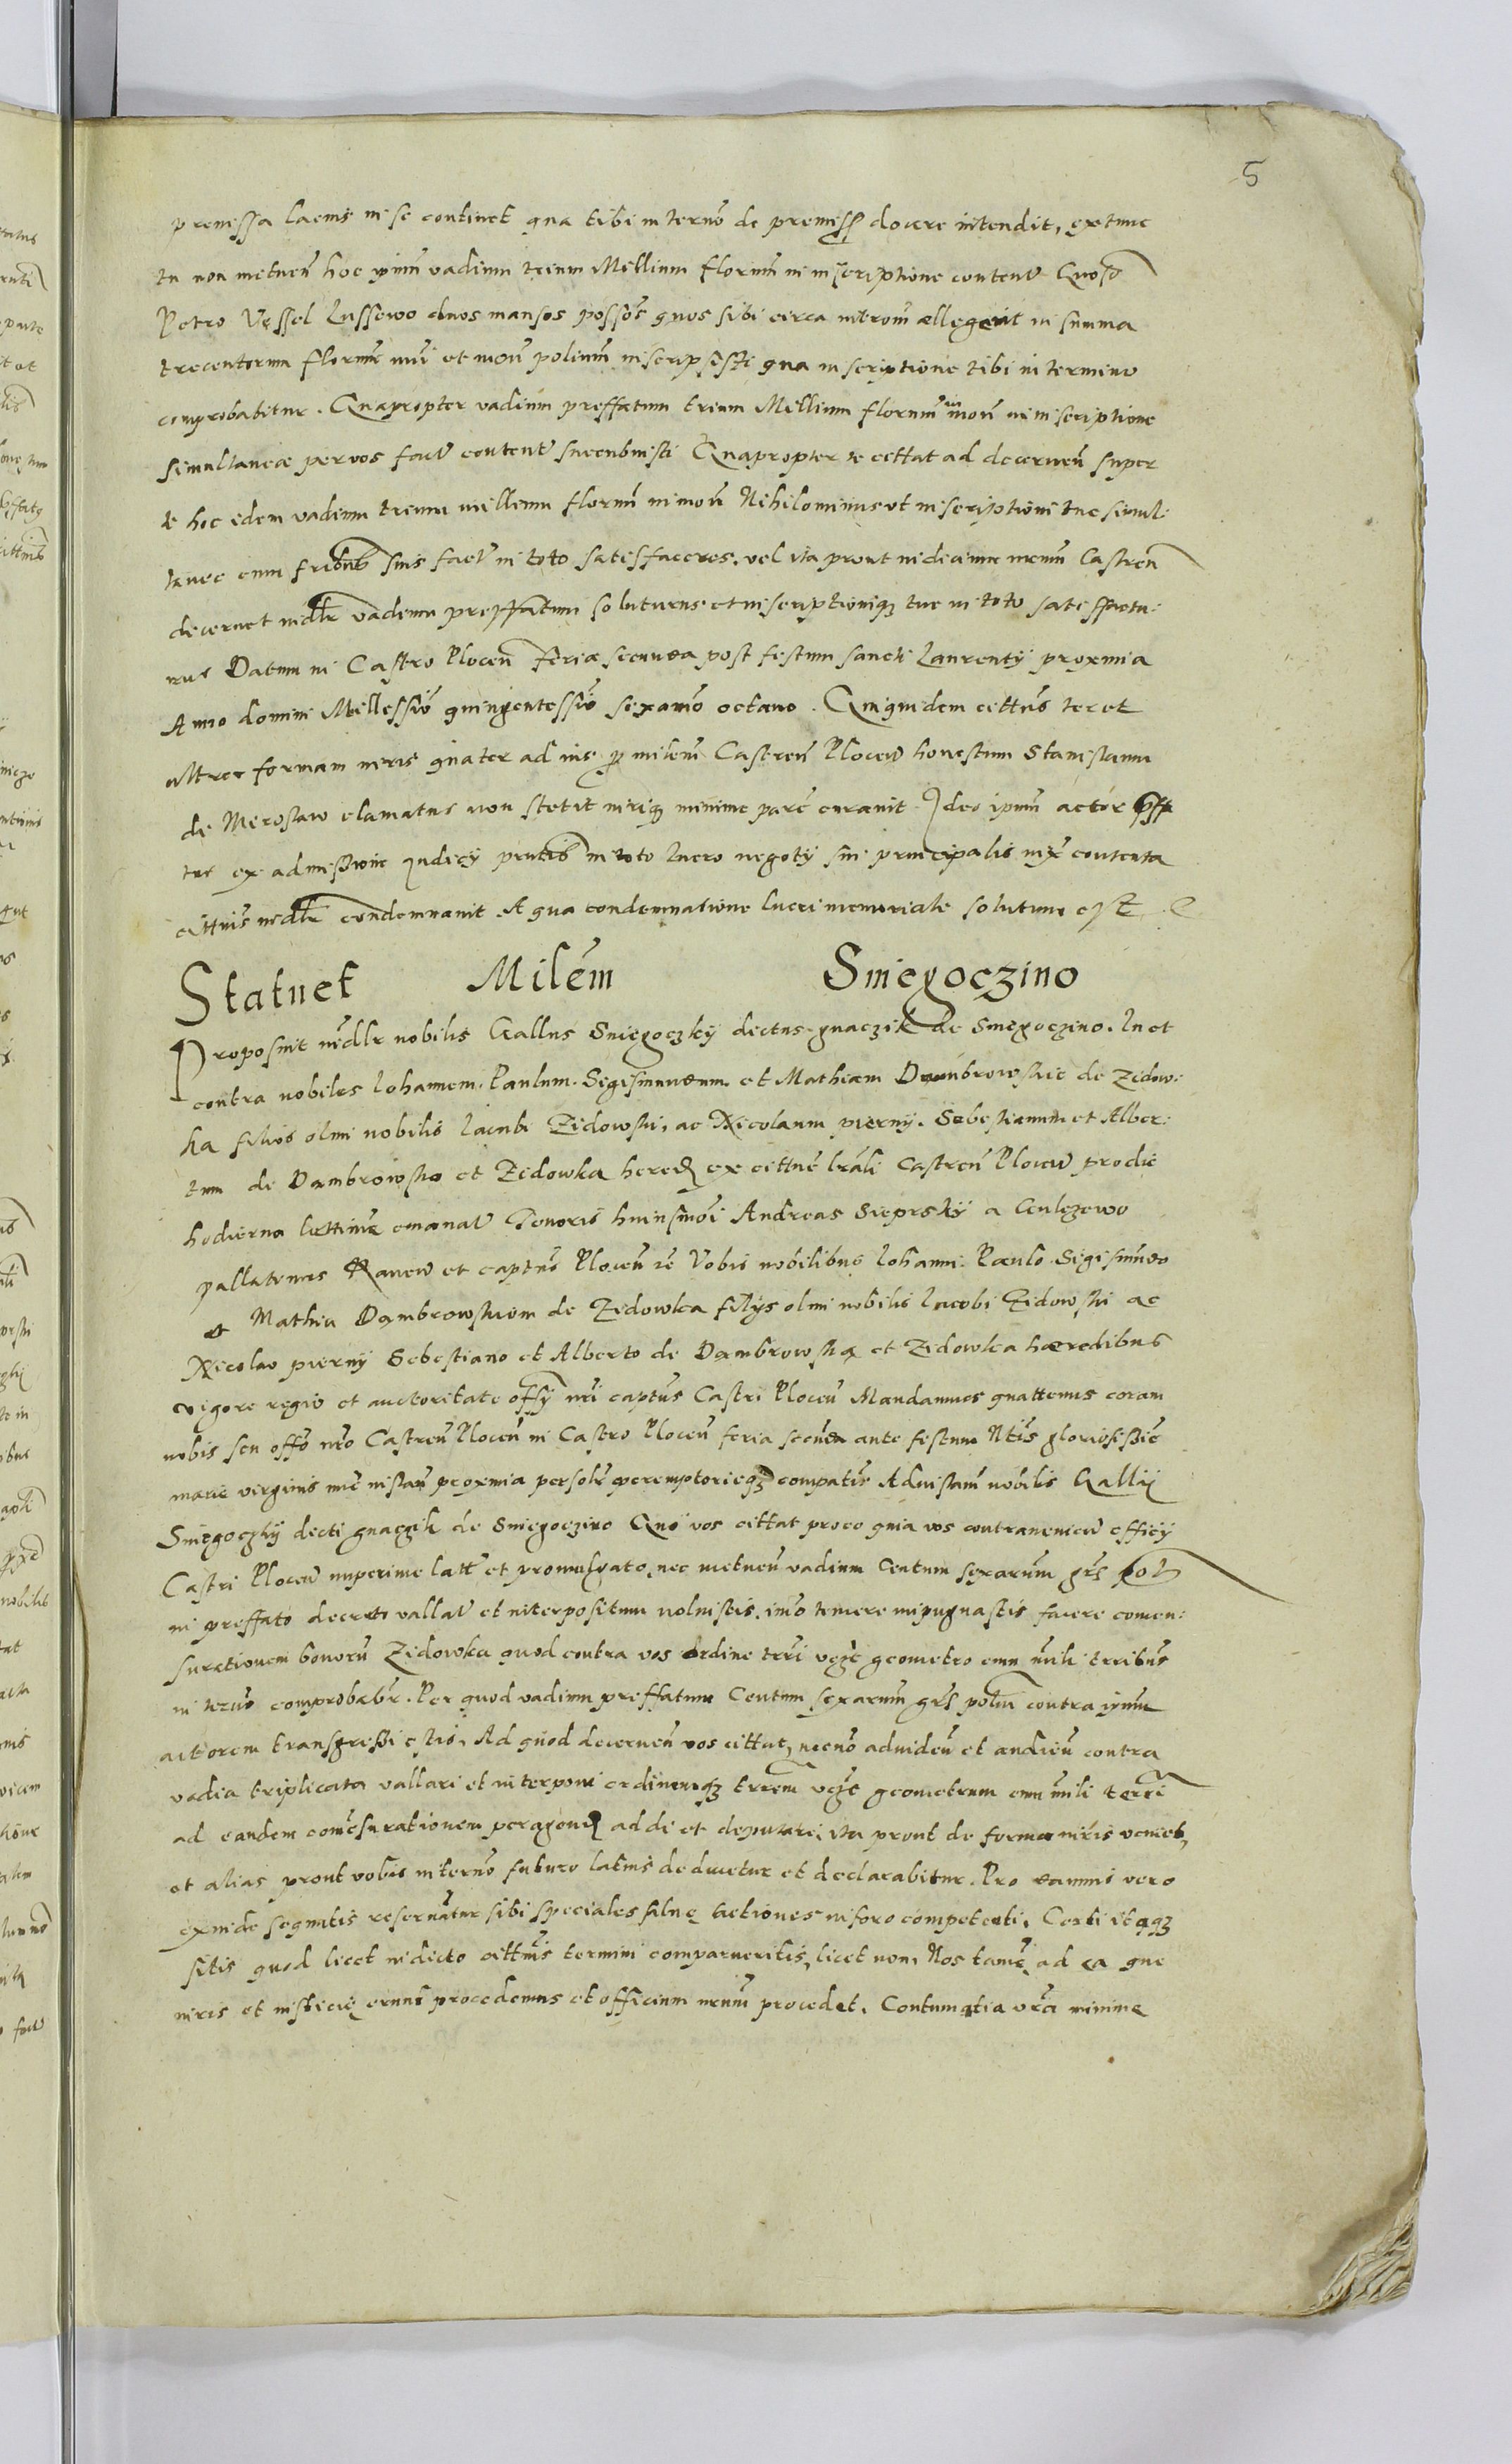 5
premissa lacius in se continet qua tibi in termo de premiss docere intendit, extunc
tu non metuen hoc ipm vadium trium Millium florenm in inscriptione content Quod
Petro Vessel Lussewo duos mansos possos quos sibi circa introm allegavit in summa
trecentorum florenm num et mon polinm inscripsisti qua inscriptione tibi in termino
comprobabitur. Quapropter vadium preffatum trium Millium florenm in mon in inscriptione
simultanea per vos fact content succubuisti Quapropter te cittat ad decernen super
te hoc idem vadium trium millium florm in mon Nihilominus ut inscriptioni tue simul:
tanee cum fribus suis fact in toto satisfaceres. vel ita prout iudicium menm Castren
decernet midlr vadium preffatum soluturus et inscriptioniq tue in toto satisffactu:
rus Datum in Castro Plocen feria secunda post festum sancti Laurentij proxima
Anno domini Millessio quingentessio sexamo octavo. Quiquidem cittus ter et
ultra formam iuris quater ad ius p milem Castren Plocen honestum Stanislaum
de Meroslaw clamatus non stetit iuriq minime pare curavit. Ideo ipm actor pff
tus ex admissione Judicij pntis in toto lucro negotij sui principalis iux contenta
cittnis midlr condemnavit. A qua condemnatione lucri memoriale solutum est.
Statuet Milem Sniegoczino
Proposuit midlr nobilis Gallus Sniegoczky dictus gnaczik de Sniegoczino. In et
contra nobiles Johannem. Paulum. Sigismundum et Mathiam Dambrowskie de Zidow:
ka filios olim nobilis Jacobi Zidowski, ac Nicolaum pierny. Sebestianum et Alber:
tum de Dambrowska et Zidowka hered ex cittne lrali Castren Plocen pro die
hodierna lettime emanat Tenoris huiusmoi Andreas Sieprsky a Gulczewo
pallatinus Raven et captus Plocen re Vobis nobilibus Johanni. Paulo Sigismundo
et Mathia Dambrowskiom de Zidowka filijs olim nobilis Jacobi Zidowski ac
Nicolao pierny Sebestiano et Alberto de Dambrowska et Zidowka haeredibus
vigore regio et auctoritate offij nri captus Castri Plocen Mandamus quattenus coram
nobis seu offo nro Castren Plocen in Castro Plocen feria secunda ante festum Ntis gloriosissie
marie virginis nuc instan proxima persolr peremptorieqz compatis Ad instam nobilis Galli
Sniegoczky dicti gnaczik de Sniegoczino Qui vos cittat pro eo quia vos contravenien officij
Castri Plocen nuperime latt et promulgato, nec metuen vadium Centum sexarum grs pol
in preffato decreto vallat et interpositum voluistis. imo temere impugnastis facere comen:
surationem bonoru Zidowka quod contra vos ordine trri vge geometro cum mili terribus
in termo comprobabr. Per quod vadium preffatum Centum sexarum grs polni contra ipm
actorem transgressi estis, Ad quod decernen vos cittat, necno ad viden et audien contra
vadia triplicata vallari et interponi ordinemqz trrem vge geometrum cum mili terri
ad eandem comesurationem peragend addi et deputari, ita prout de forma iuris veniet,
et alias prout vobis in termo futuro latius deducetur et declarabitur. Pro damnis vero
exinde sequutis reservatur sibi speciales salve actiones in foro competenti. Certi itaqz
sitis quod licet in dicto cittnis termini comparueritis, licet non, Nos tame ad ea que
iuris et iusticie erunt procedemus et officium nrum procedet. Contumatia vra minime